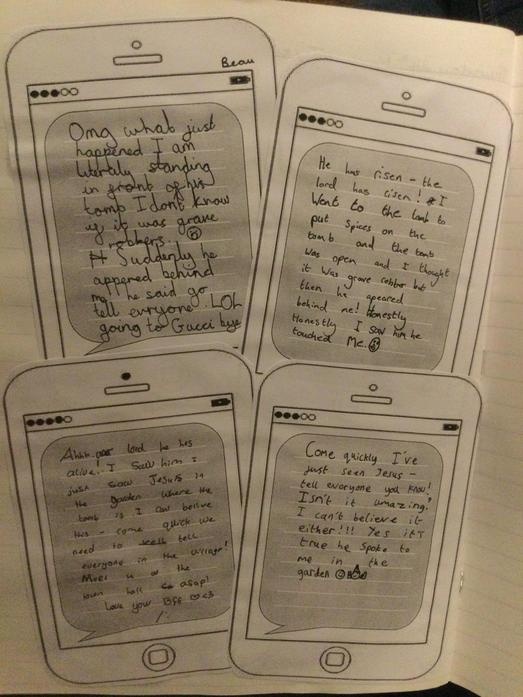 Beau
Omg what just
happened I am
literily standing
in front of his
tomb I dont know
if it was grave
robbers.
Suddenly he
appered behind
me he said go
tell evryone LOL
going to Gucci bye
He has risen - the
lord has risen! I
Went to the tomb to
put spices on the
tomb and the tomb
was open and I thought
it was grave robber but
then he apeared
behind me! Honestly
Honestly I saw him he
touched Me.
Ahhh lord he has
alive! I saw him I
just saw Jesus in
the garden where the
tomb is I can belive
this - come quick we
need to tell
everyone in the village!
Meet u at the
town hall asap!
Love your Bff <3
Come quickly I've
just seen Jesus -
tell everyone you know!
Isn't it amazing.
I can't believe it
either!!! Yes it's
true he spoke to
me in the
garden